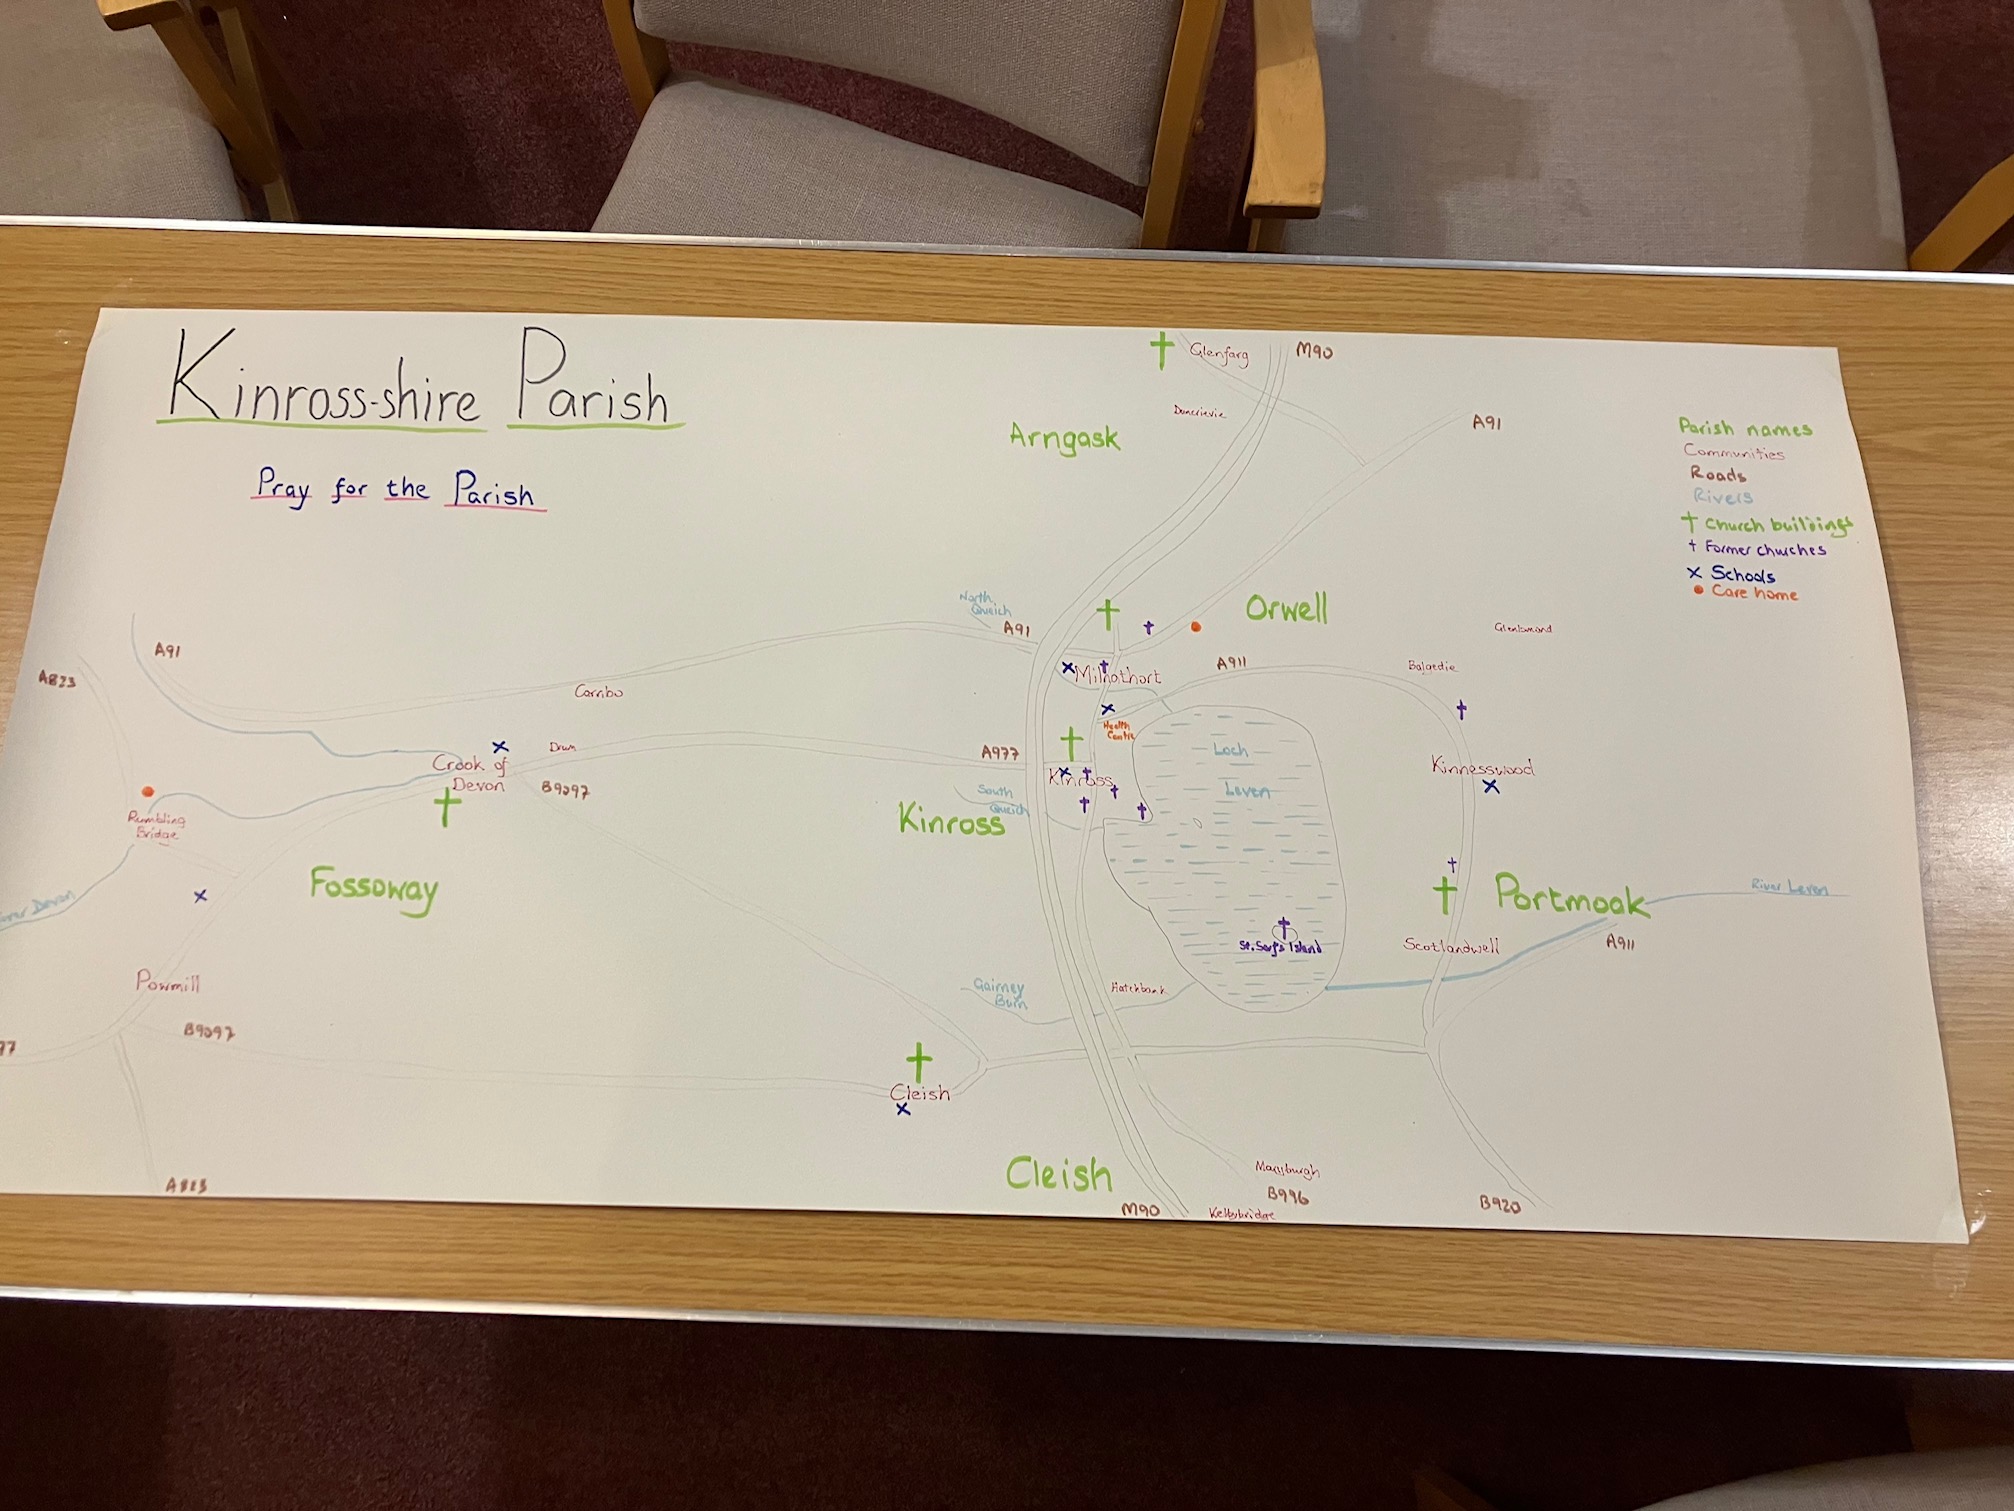 Kinross-shire Parish
Pray for the Parish
Glenfarg
M90
Duncrievie
Arngask
A91
Parish names
Communities
Roads
Rivers
Church buildings
Former churches
Schools
Care home
North
Queich
A91
Orwell
A91
A823
Milnathort
A911
Balgedie
Carnbo
Health
Centre
Loch
Leven
Crook of
Devon
Drum
B9097
A977
Kinross
South
Queich
Kinross
Kinnesswood
Rumbling
Bridge
Fossoway
Portmoak
River Leven
Devon
St. Serf's Island
Scotlandwell
A911
Powmill
Gairney
Burn
Hatchbank
B9097
77
Cleish
Cleish
A823
M90
Maryburgh
B996
Kelty bridge
B920